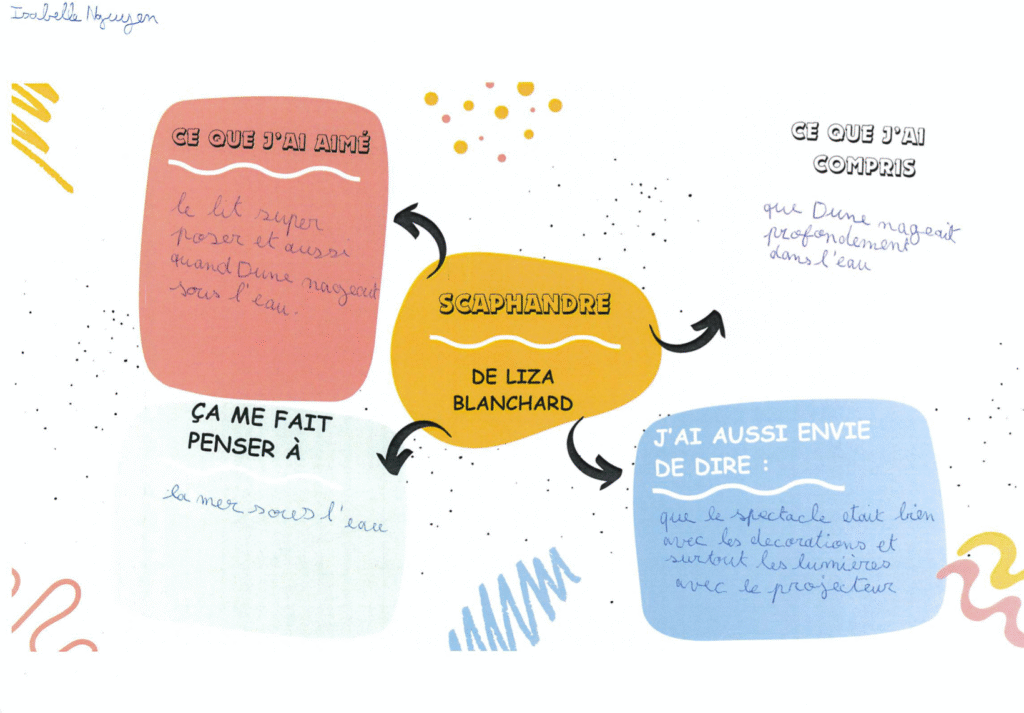 Isabelle Nguyen
CE QUE J'AI AIMÉ
le lit super
poser et aussi
quand Dune nageait
sous l'eau.
CE QUE J'AI
COMPRIS
que Dune nageait
profondement
dans l'eau
SCAPHANDRE
DE LIZA
BLANCHARD
ÇA ME FAIT
PENSER À
la mer sous l'eau
J'AI AUSSI ENVIE
DE DIRE :
que le spectacle etait bien
avec les decorations et
surtout les lumières
avec le projecteur